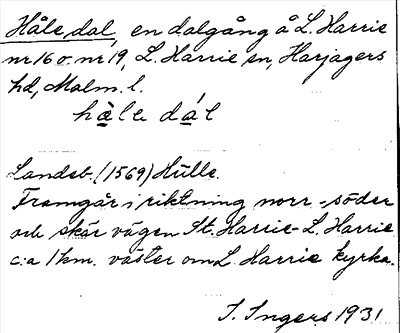 Håle dal, en dalgång å L. Harrie
nr 16 o. nr 19, L. Harrie sn, Harjagers
hd, Malm. l.
hàle dál
Landsb. (1569) Hülle.
Framgår i riktning norr-söder
och skär vägen St. Harrie-L. Harrie
c:a 1 km. väster om L. Harrie kyrka.
I. Ingers 1931